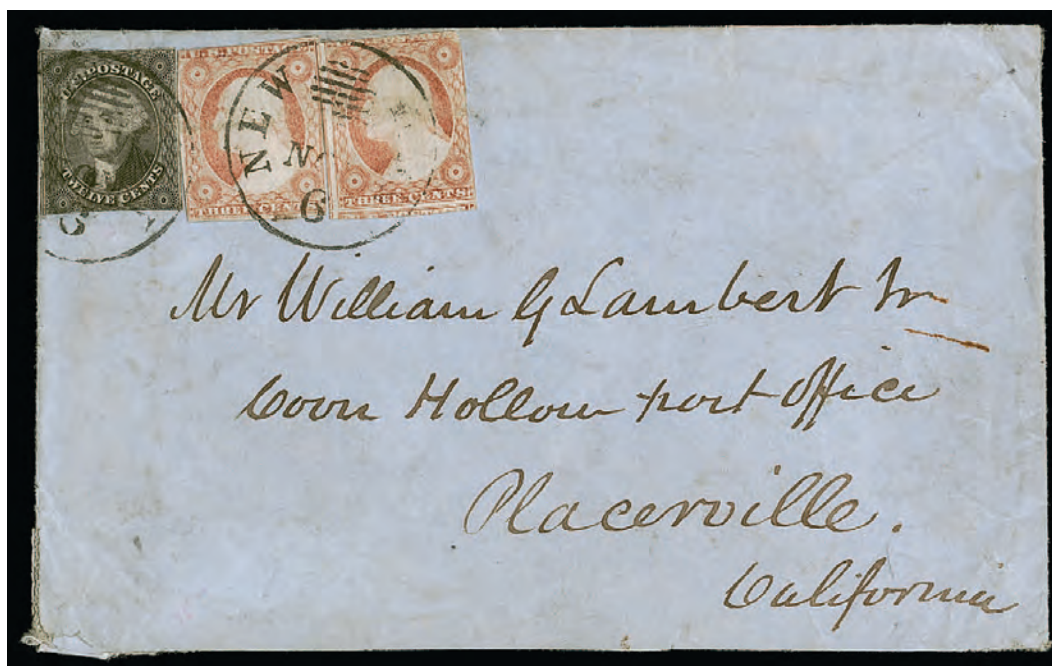 U.S. POSTAGE
TWELVE CENTS
U.S. POSTAGE
THREE CENTS
THREE CENTS
NEW
6
Mr William G Lambert Jr
Coon Hollow post Office
Placerville.
California